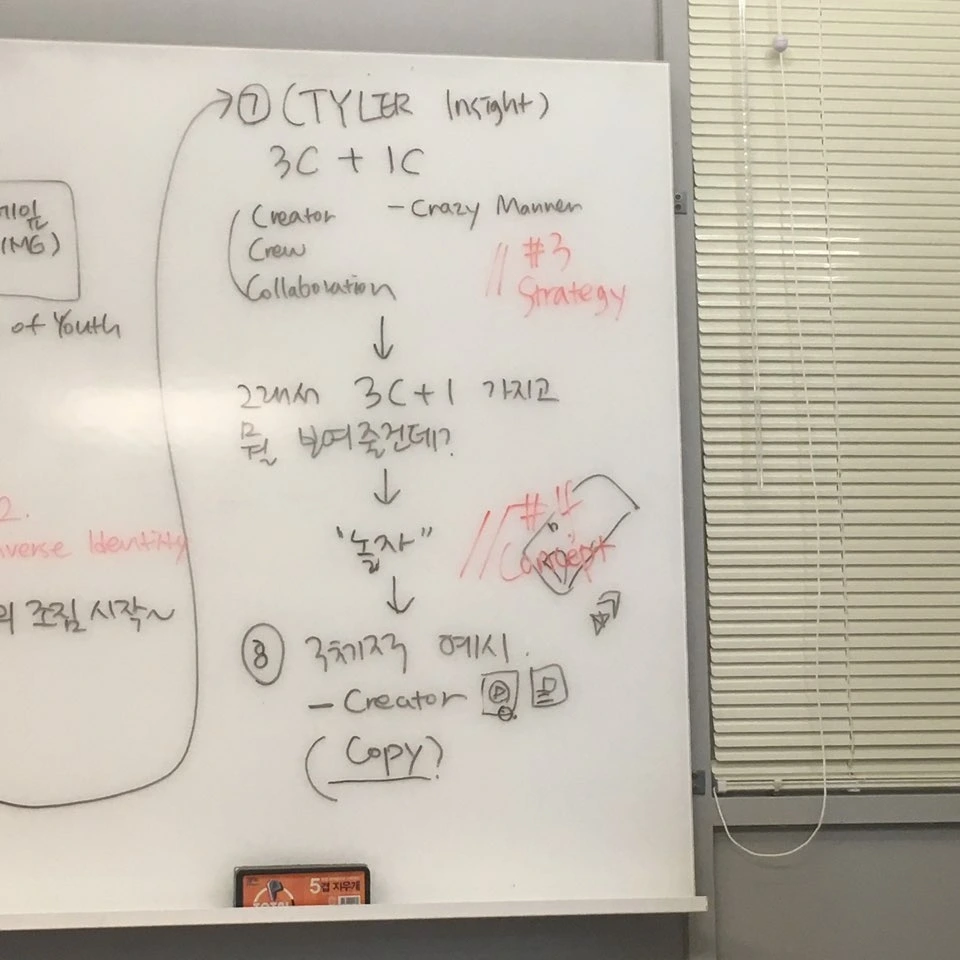 of Youth
2.
Identity
조짐 시작~
⑦ (TYLER Insight)
3C + 1C
Creator - Crazy Manner
Crew
Collaboration
//#3
Strategy
↓
그래서 3C+1 가지고
뭘 보여줄건데?
↓
"놀자"
//#
Concept
↓
⑧ 구체적 예시.
- Creator
(Copy?
5겹 지우개
TOTAL